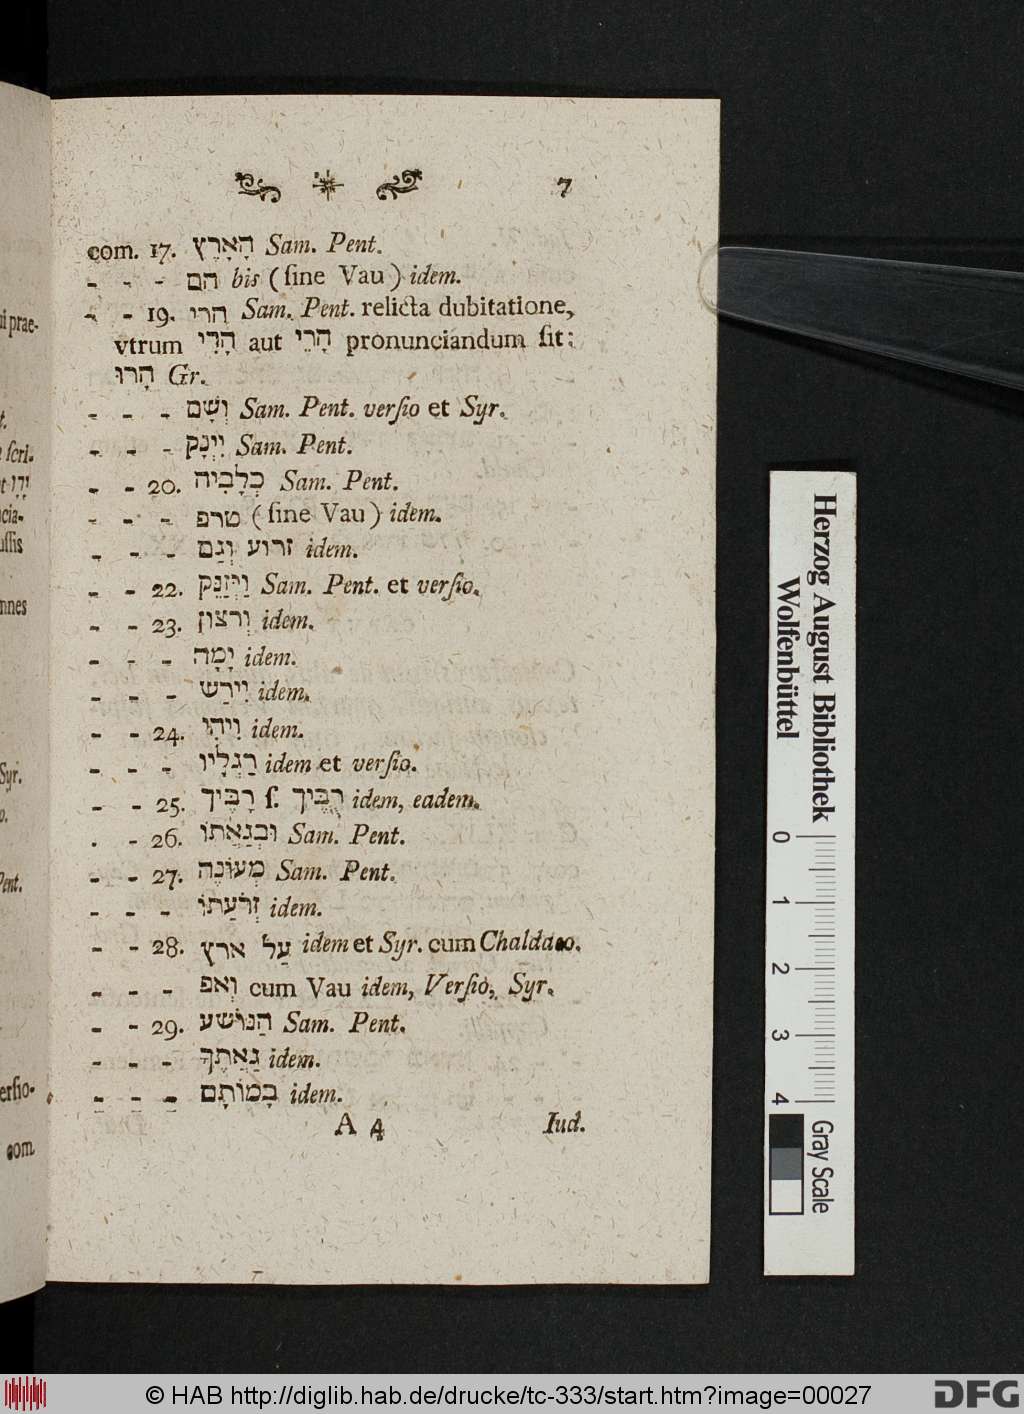 7
com. 17. הָאָרֶץ Sam. Pent.
- - - הם bis (ſine Vau) idem.
- - 19. הרי Sam. Pent. relicta dubitatione,
vtrum הָדָי aut הָרֵי pronunciandum ſit:
הָרוּ Gr.
- - - וְשָׁם Sam. Pent. verſio et Syr.
- - - יִינָק Sam. Pent.
- - 20. כְלָבִיה Sam. Pent.
- - - טרפ (ſine Vau) idem.
- - - זרוע וְגַם idem.
- - 22. וַיְּזַנֵּק Sam. Pent. et verſio.
- - 23. וְרצון idem.
- - - יָמָה idem.
- - - יִירַש idem.
- - 24. וִיהִי idem.
- - - רַגְלָיו idem et verſio.
- - 25. רָבֶּיךָ ſ. רֻבֶּיךָ idem, eadem.
. - 26. וּבְגַאֲתוֹ Sam. Pent.
- - 27. מְעוֹנֶה Sam. Pent.
- - - זְרֹעַתוֹ idem.
- - 28. עַל ארץ idem et Syr. cum Chaldaeo.
- - - וְאפ cum Vau idem, Verſio, Syr.
- - 29. הַנּוֹשע Sam. Pent.
- - - גַאֲתֶךָ idem.
- - - בָמוֹתָם idem.
A 4 Iud.
ui prae-
t.
ſcri-
t יָדָו
cia-
uſſis
nnes
Syr.
o.
Pent.
erſio-
com.
Herzog August Bibliothek
Wolfenbüttel
0 1 2 3 4
Gray Scale
© HAB http://diglib.hab.de/drucke/tc-333/start.htm?image=00027
DFG